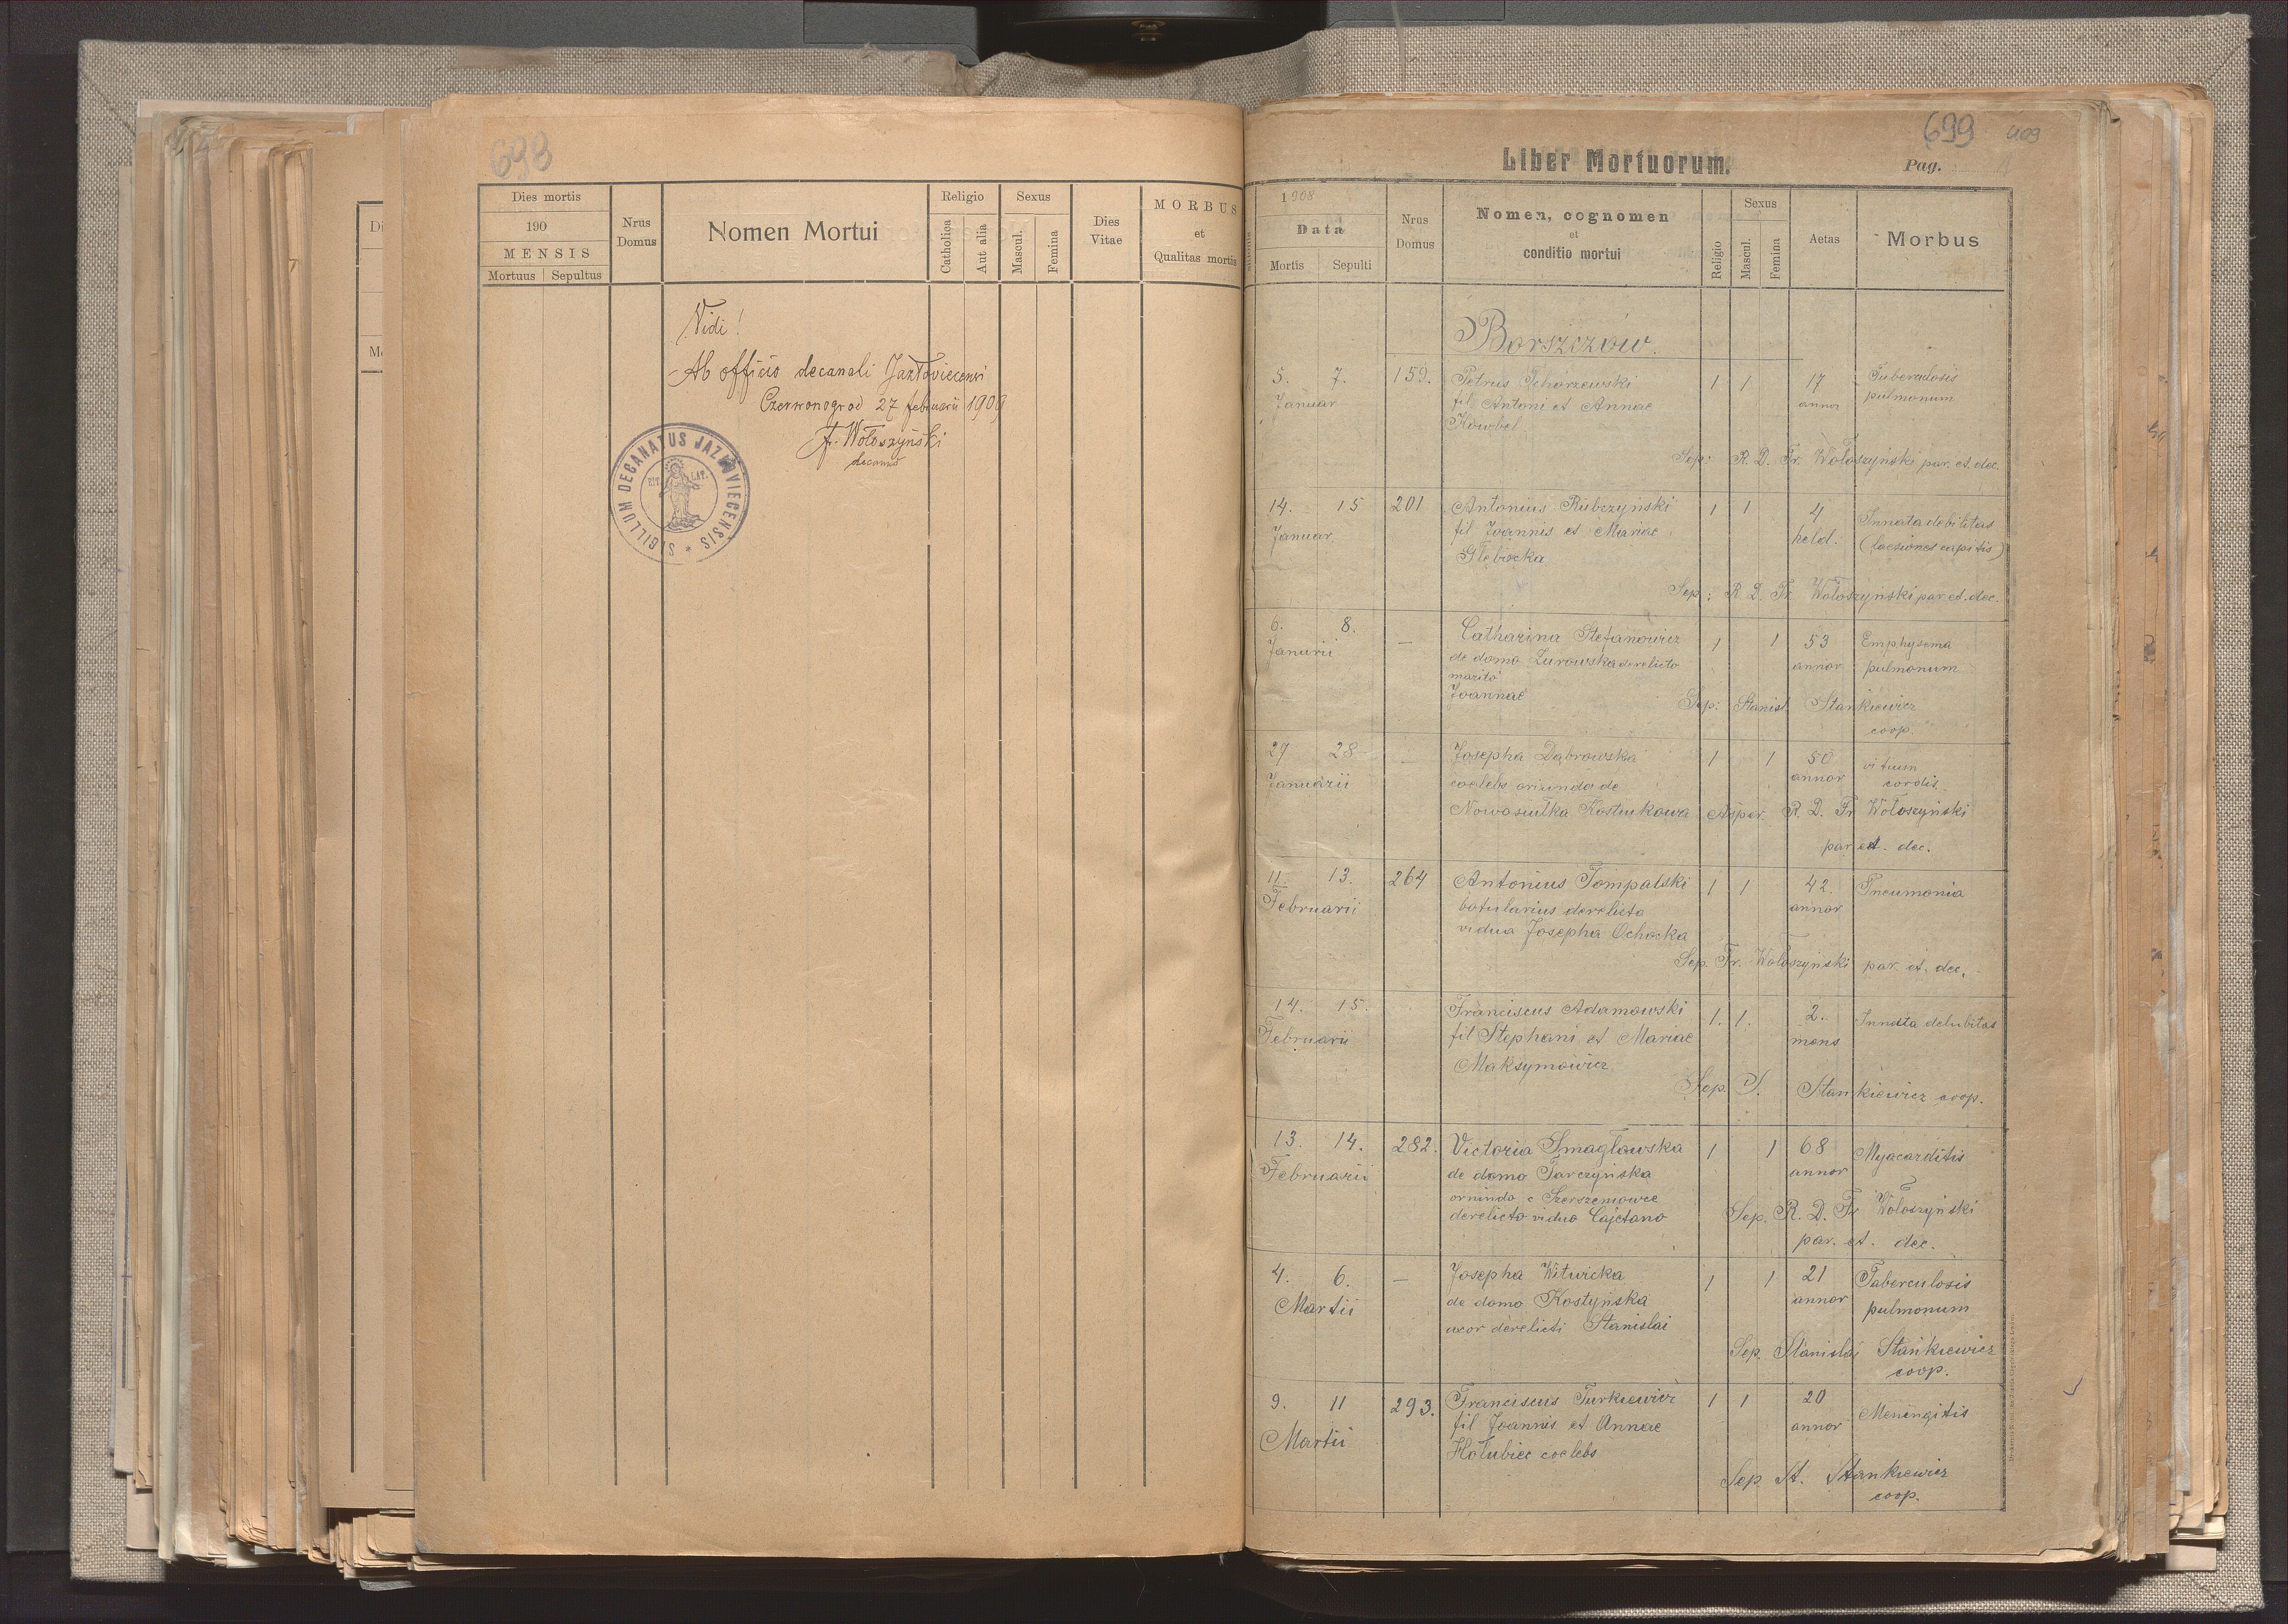 698
Dies mortis
190
MENSIS
Mortuus Sepultus
Nrus Domus
Nomen Mortui
Religio
Catholica
Aut alia
Sexus
Mascul.
Femina
Dies Vitae
MORBUS
et
Qualitas mortis
Vidi!
Ab officio decanali Jazłoviecensi
Czerwonogrod 27 februarii 1909
Fr. Wołoszyński
decanus
SIGILLUM DECANATUS JAZŁOVIECENSIS *
RIT. LAT.
699
Liber Mortuorum.
Pag.
1908
Data
Mortis Sepulti
Nrus Domus
Nomen, cognomen
et
conditio mortui
Religio
Sexus
Mascul.
Femina
Aetas
Morbus
Borszczów.
5. 7. 159. Petrus Tchórzewski 1 1 17 Tuberculosis
Januar fil Antoni et Annae annor pulmonum
Kowbel
Sep: R. D. Fr. Wołoszyński par. et. dec.
14. 15 201 Antonius Rubczyński 1 1 4 Innata debilitas
Januar. fil Joannis et Mariae hebd. (laesiones capitis)
Głębocka
Sep: R D. Fr Wołoszyński par et. dec.
6. 8. — Catharina Stefanowicz 1 1 53 Emphysema
Janurii de domo Żurowska derelicto annor pulmonum
marito
Joannae
Sep: Stanisl. Stankiewicz
coop.
27 28 — Josepha Dąbrowska 1 1 50 vitium
Januarii coelebs oriunda de annor cordis
Nowosiułka Kostiukowa Asper. R. D. Fr Wołoszyński
par et. dec.
11. 13. 264 Antonius Tompalski 1 1 42. Pneumonia
Februarii botularius derelicta annor
vidua Josepha Ochocka
Sep. Fr. Wołoszyński par. et. dec.
14. 15. Franciscus Adamowski 1. 1. 2. Innata debilitas
Februarii fil Stephani et Mariae mens
Maksymowicz
Sep. S. Stankiewicz coop.
13. 14. 282. Victoria Smagłowska 1 1 68 Myacarditis
Februarii de domo Tarczyńska annor
orninda e Szerszeniowce
derelicto viduo Cajetano Sep. R. D. Fr Wołoszyński
par. et. dec.
4. 6. — Josepha Witwicka 1 1 21 Tuberculosis
Martii de domo Kostyńska annor pulmonum
uxor derelicti Stanislai
Sep. Stanislaj Stankiewicz
coop.
9. 11 293. Franciscus Turkiewicz 1 1 20 Meningitis
Martii fil Joannis et Annae annor
Hołubiec coelebs
Sep St. Stankiewicz
coop.